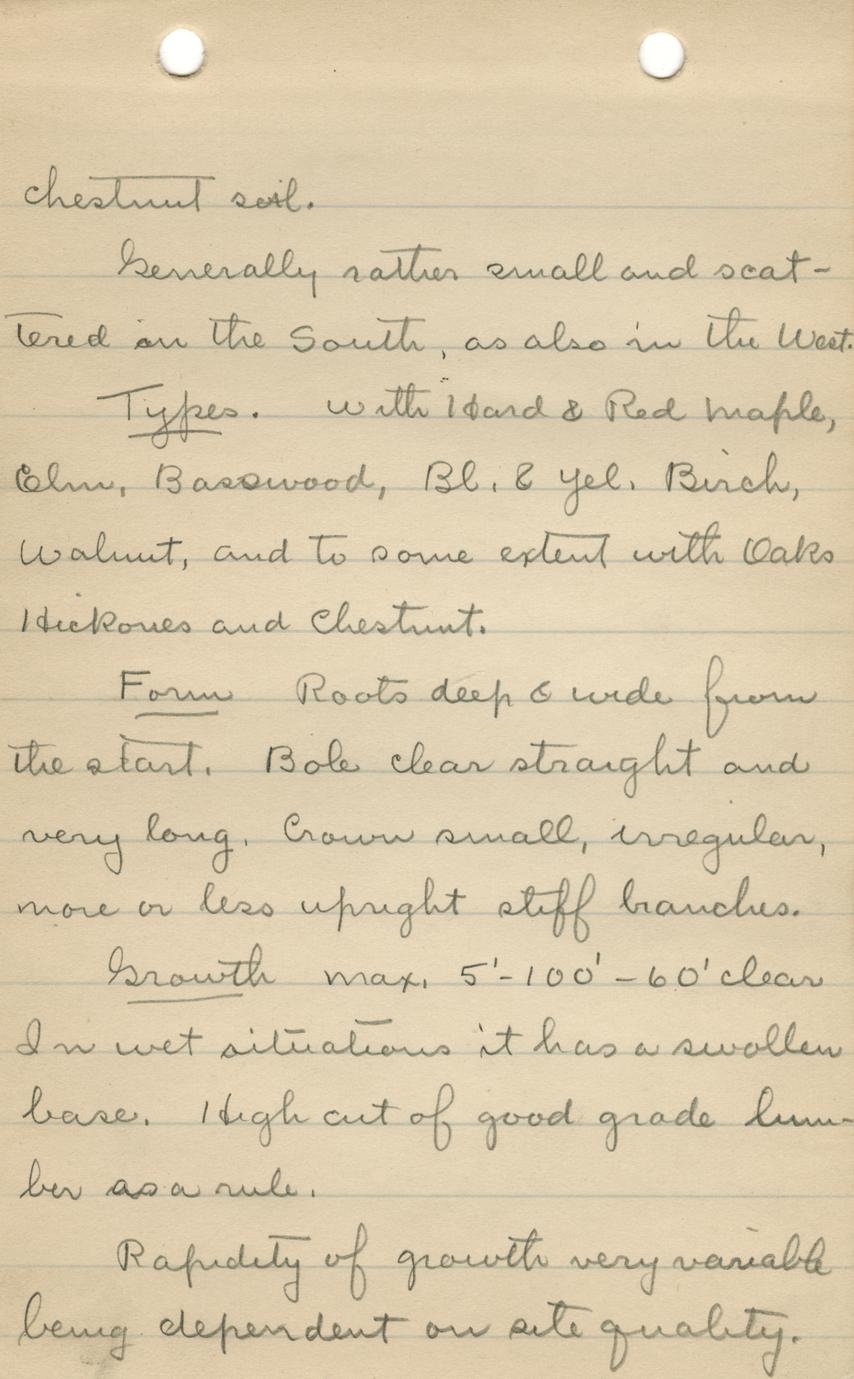 chestnut soil.
Generally rather small and scat-
tered in the South, as also in the West.
Types. With Hard & Red Maple,
Elm, Basswood, Bl. & Yel. Birch,
Walnut, and to some extent with Oaks
Hickories and Chestnut.
Form Roots deep & wide from
the start. Bole clear straight and
very long. Crown small, irregular,
more or less upright stiff branches.
Growth max. 5'-100'-60' clear
In wet situations it has a swollen
base. High cut of good grade lum-
ber as a rule.
Rapidity of growth very variable
being dependent on site quality.